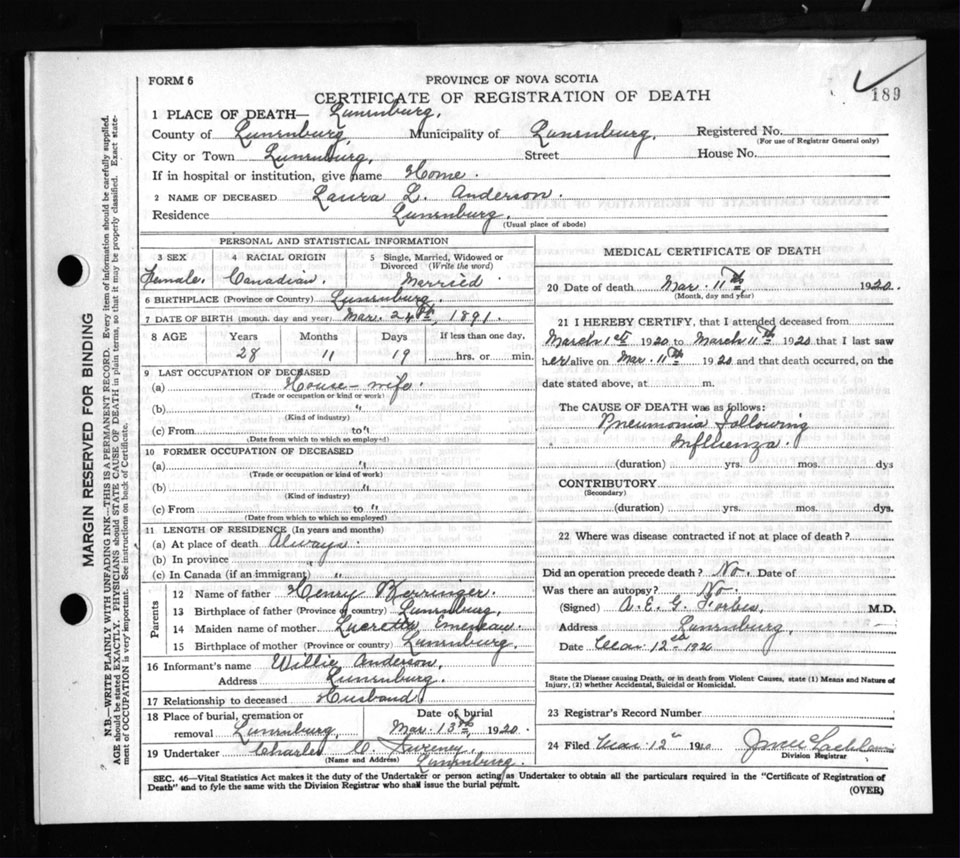 FORM 6
PROVINCE OF NOVA SCOTIA
189
CERTIFICATE OF REGISTRATION OF DEATH
1 PLACE OF DEATH— Lunenburg,
County of Lunenburg, Municipality of Lunenburg, Registered No.
(For use of Registrar General only)
City or Town Lunenburg, Street House No.
If in hospital or institution, give name Home.
2 NAME OF DECEASED Laura L. Anderson.
Residence Lunenburg.
(Usual place of abode)
PERSONAL AND STATISTICAL INFORMATION
3 SEX 4 RACIAL ORIGIN 5 Single, Married, Widowed or
Divorced (Write the word)
Female. Canadian. Married
6 BIRTHPLACE (Province or Country) Lunenburg.
7 DATE OF BIRTH (month, day and year) Mar. 24th, 1891.
8 AGE Years Months Days If less than one day,
28 11 19 hrs. or min.
9 LAST OCCUPATION OF DECEASED
(a) House-wife.
(Trade or occupation or kind or work)
(b) "
(Kind of industry)
(c) From to "
(Date from which to which so employed)
10 FORMER OCCUPATION OF DECEASED
(a) "
(Trade or occupation or kind of work)
(b) "
(Kind of industry)
(c) From to "
(Date from which to which so employed)
11 LENGTH OF RESIDENCE (In years and months)
(a) At place of death Always.
(b) In province "
(c) In Canada (if an immigrant) "
Parents
12 Name of father Henry
13 Birthplace of father (Province or country) Lunenburg,
14 Maiden name of mother Lucretia Emeneau.
15 Birthplace of mother (Province or country) Lunenburg,
16 Informant's name Willie Anderson,
Address Lunenburg.
17 Relationship to deceased Husband
18 Place of burial, cremation or Date of burial
removal Lunenburg, Mar. 13th 1920.
19 Undertaker Charles C. Sweeney,
(Name and Address) Lunenburg.
MEDICAL CERTIFICATE OF DEATH
20 Date of death Mar. 11th, 1920.
(Month, day and year)
21 I HEREBY CERTIFY, that I attended deceased from
March 1st 1920 to March 11th 1920 that I last saw
her alive on Mar. 11th 1920 and that death occurred, on the
date stated above, at m.
The CAUSE OF DEATH was as follows:
Pneumonia following
Influenza.
(duration) yrs. mos. dys
CONTRIBUTORY
(Secondary)
(duration) yrs. mos. dys.
22 Where was disease contracted if not at place of death?
Did an operation precede death? No. Date of
Was there an autopsy? No.
(Signed) A. E. G. Forbes, M.D.
Address Lunenburg,
Date Mar 12th 1920
State the Disease causing Death, or in death from Violent Causes, state (1) Means and Nature of
Injury, (2) whether Accidental, Suicidal or Homicidal.
23 Registrar's Record Number
24 Filed Mar 12th 1920
Division Registrar
SEC. 46—Vital Statistics Act makes it the duty of the Undertaker or person acting as Undertaker to obtain all the particulars required in the "Certificate of Registration of
Death" and to fyle the same with the Division Registrar who shall issue the burial permit.
(OVER)
MARGIN RESERVED FOR BINDING
N.B.—WRITE PLAINLY WITH UNFADING INK—THIS IS A PERMANENT RECORD. Every item of information should be carefully supplied.
AGE should be stated EXACTLY. PHYSICIANS should STATE CAUSE OF DEATH in plain terms, so that it may be properly classified. Exact state-
ment of OCCUPATION is very important. See instructions on back of Certificate.